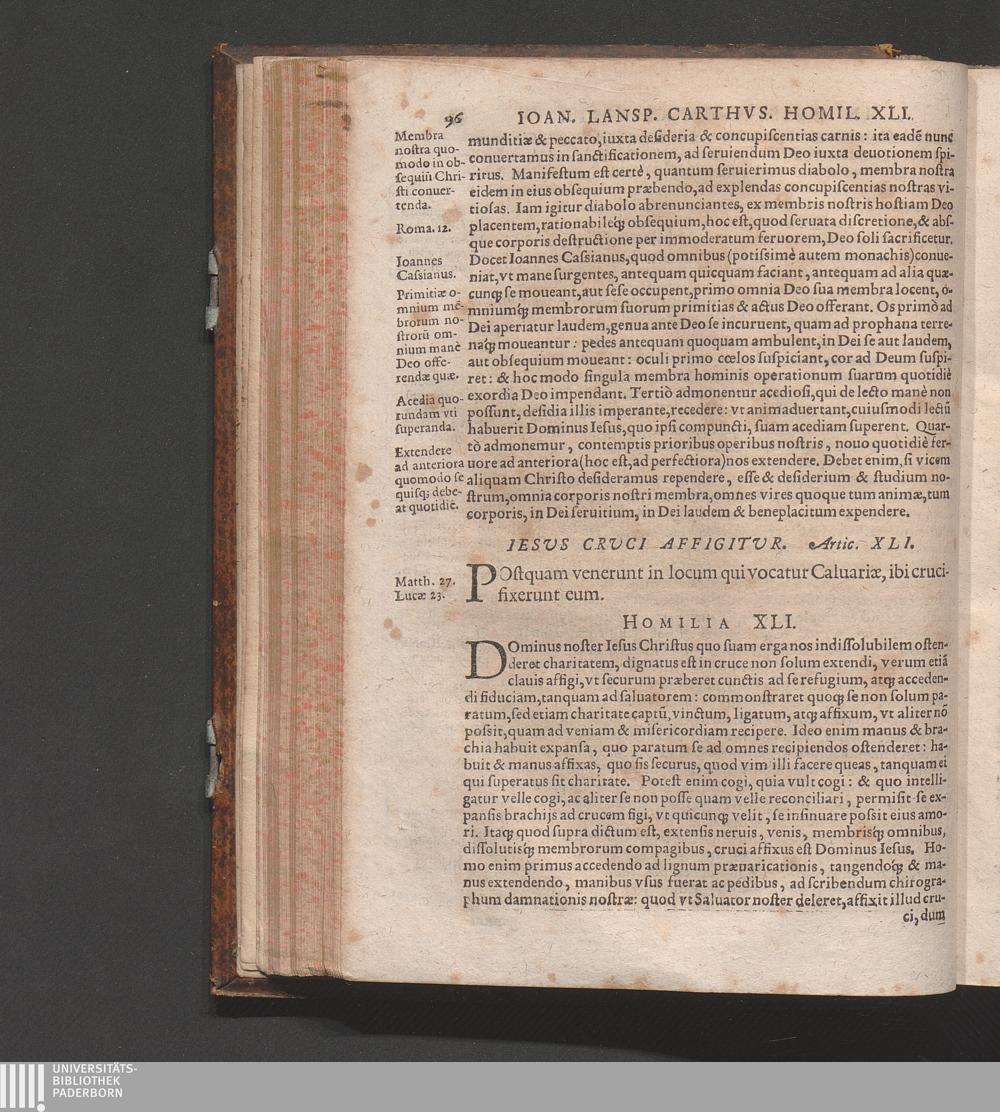 96 IOAN. LANSP. CARTHVS. HOMIL. XLI.
Membra
nostra quo-
modo in ob-
sequiũ Chri-
sti conuer-
tenda.
Roma. 12.
Ioannes
Cassianus.
Primitiæ o-
mnium mẽ-
brorum no-
strorũ om-
nium manè
Deo offe-
rendæ quæ.
Acedia quo-
rundam vti
superanda.
Extendere
ad anteriora
quomodo se
quisq; debe-
at quotidie.
munditiæ & peccato, iuxta desideria & concupiscentias carnis: ita eadẽ nunc
conuertamus in sanctificationem, ad seruiendum Deo iuxta deuotionem spi-
ritus. Manifestum est certè, quantum seruierimus diabolo, membra nostra
eidem in eius obsequium præbendo, ad explendas concupiscentias nostras vi-
tiosas. Iam igitur diabolo abrenunciantes, ex membris nostris hostiam Deo
placentem, rationabileq́; obsequium, hoc est, quod seruata discretione, & abs-
que corporis destructione per immoderatum feruorem, Deo soli sacrificetur.
Docet Ioannes Cassianus, quod omnibus (potissimè autem monachis) conue-
niat, vt mane surgentes, antequam quicquam faciant, antequam ad alia quæ-
cunq; se moueant, aut sese occupent, primo omnia Deo sua membra locent, o-
mniumq́; membrorum suorum primitias & actus Deo offerant. Os primò ad
Dei aperiatur laudem, genua ante Deo se incuruent, quam ad prophana terre-
naq́; moueantur: pedes antequam quoquam ambulent, in Dei se aut laudem,
aut obsequium moueant: oculi primo cœlos suspiciant, cor ad Deum suspi-
ret: & hoc modo singula membra hominis operationum suarum quotidiè
exordia Deo impendant. Tertiò admonentur acediosi, qui de lecto manè non
possunt, desidia illis imperante, recedere: vt animaduertant, cuiusmodi lectũ
habuerit Dominus Iesus, quo ipsi compuncti, suam acediam superent. Quar-
tò admonemur, contemptis prioribus operibus nostris, nouo quotidiè fer-
uore ad anteriora (hoc est, ad perfectiora) nos extendere. Debet enim, si vicem
aliquam Christo desideramus rependere, esse & desiderium & studium no-
strum, omnia corporis nostri membra, omnes vires quoque tum animæ, tum
corporis, in Dei seruitium, in Dei laudem & beneplacitum expendere.
IESVS CRVCI AFFIGITVR. Artic. XLI.
Matth. 27.
Lucæ 23.
POstquam venerunt in locum qui vocatur Caluariæ, ibi cruci-
fixerunt eum.
HOMILIA XLI.
DOminus noster Iesus Christus quo suam erga nos indissolubilem osten-
deret charitatem, dignatus est in cruce non solum extendi, verum etiã
clauis affigi, vt securum præberet cunctis ad se refugium, atq; acceden-
di fiduciam, tanquam ad saluatorem: commonstraret quoq; se non solum pa-
ratum, sed etiam charitate captũ, vinctum, ligatum, atq; affixum, vt aliter nõ
possit, quam ad veniam & misericordiam recipere. Ideo enim manus & bra-
chia habuit expansa, quo paratum se ad omnes recipiendos ostenderet: ha-
buit & manus affixas, quo sis securus, quod vim illi facere queas, tanquam ei
qui superatus sit charitate. Potest enim cogi, quia vult cogi: & quo intelli-
gatur velle cogi, ac aliter se non posse quam velle reconciliari, permisit se ex-
pansis brachijs ad crucem figi, vt quicunq; velit, se insinuare possit eius amo-
ri. Itaq; quod supra dictum est, extensis neruis, venis, membrisq́; omnibus,
dissolutisq́; membrorum compagibus, cruci affixus est Dominus Iesus. Ho-
mo enim primus accedendo ad lignum præuaricationis, tangendoq́; & ma-
nus extendendo, manibus vsus fuerat ac pedibus, ad scribendum chirogra-
phum damnationis nostræ: quod vt Saluator noster deleret, affixit illud cru-
ci, dum
UNIVERSITÄTS-
BIBLIOTHEK
PADERBORN